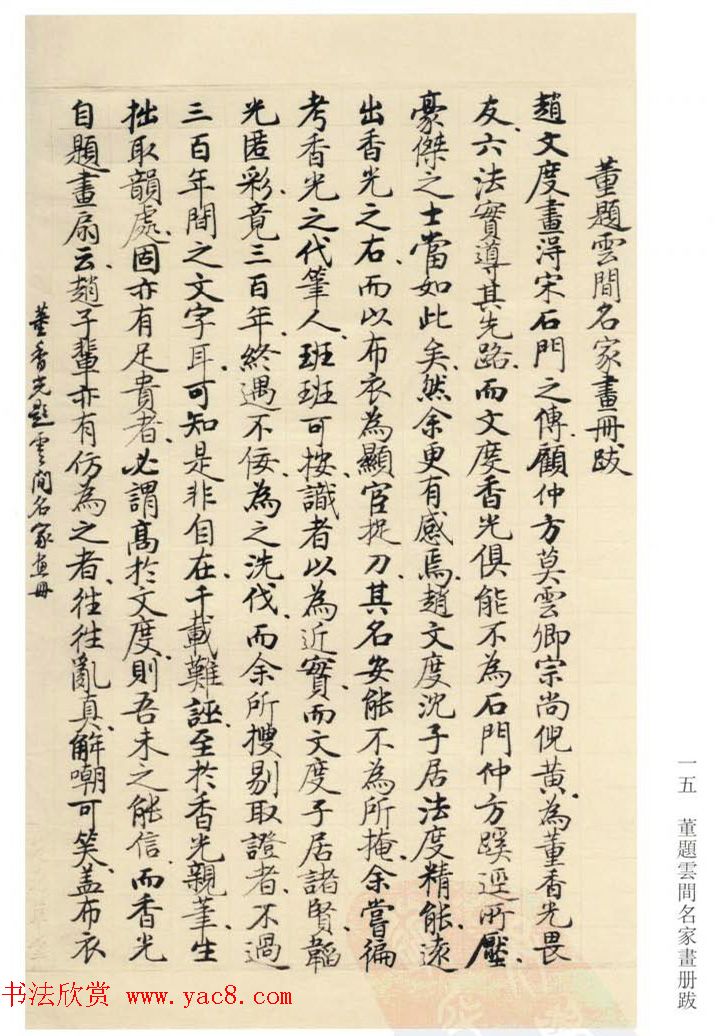 一五　董題雲間名家畫册跋
董題雲間名家畫冊跋
趙文度畫得宋石門之傳、顧仲方莫雲卿宗尚倪黃、為董香光畏
友、六法實導其先路、而文度香光俱能不為石門仲方蹊逕所壓、
豪傑之士當如此矣、然余更有感焉、趙文度沈子居法度精能、遠
出香光之右、而以布衣為顯宦捉刀、其名安能不為所掩、余嘗徧
考香光之代筆人、班班可按、識者以為近實、而文度子居諸賢、韜
光匿彩、竟三百年、終遇不佞、為之洗伐、而余所搜剔取證者、不過
三百年間之文字耳、可知是非自在、千載難誣、至於香光親筆、生
拙取韻處、固亦有足貴者、必謂高於文度、則吾未之能信、而香光
自題畫扇云、趙子輩亦有仿為之者、往往亂真、解嘲可笑、盖布衣
董香光題雲間名家画冊
书法欣赏 www.yac8.com